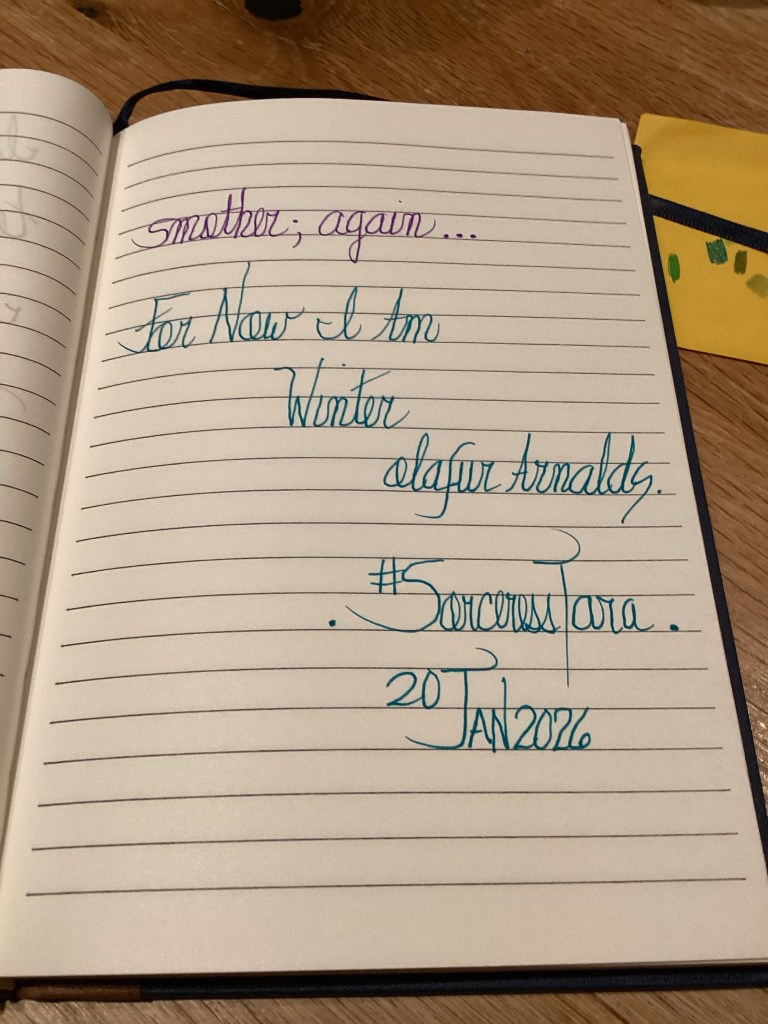 smother; again...
For Now I Am
Winter
olafur Arnalds.
. #SorceressTara .
20 JAN 2026